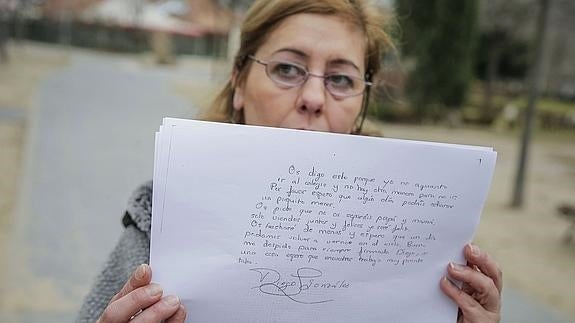 Os digo esto porque yo no aguanto
ir al colegio y no hay otra manera para no ir
Por favor espero que algún día podáis odiarme
un poquito menos.
Os pido que no os separéis papá y mamá,
solo viéndoos juntos y felices yo seré feliz.
Os echaré de menos y espero que un día
podamos volver a vernos en el cielo. Bueno
me despido para siempre firmado Diego, a
una cosa espero que encuentres trabajo muy pronto
tata.
Diego González